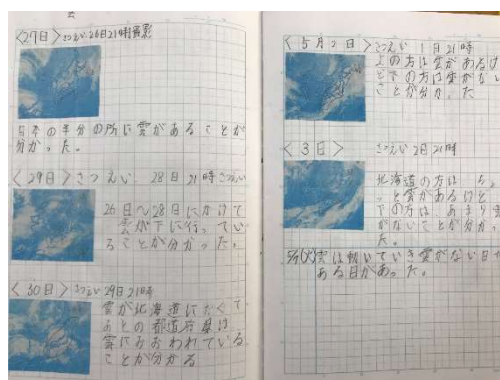 雲
<27日>さつえい26日21時撮影
日本の半分の所に雲があることが
分かった。
<29日>さつえい 28日 21時さつえい
26日〜28日にかけて
雲が下に行っってい
ることが分かった。
<30日>さつえい29日21時
雲が北海道になくて
あとの都道府県は
雲におおわれている
ことが分かる
<5月2日>さつえい 1日21時
上の方は雲があるけ
ど下の方は雲がない
ことが分かった
<3日>さつえい2日21時
北海道の方は ちょ
っと雲があるけど
下の方は あまり雲
がないことが分かっ
た。
雲は動いていき雲がない日が
ある日があった。